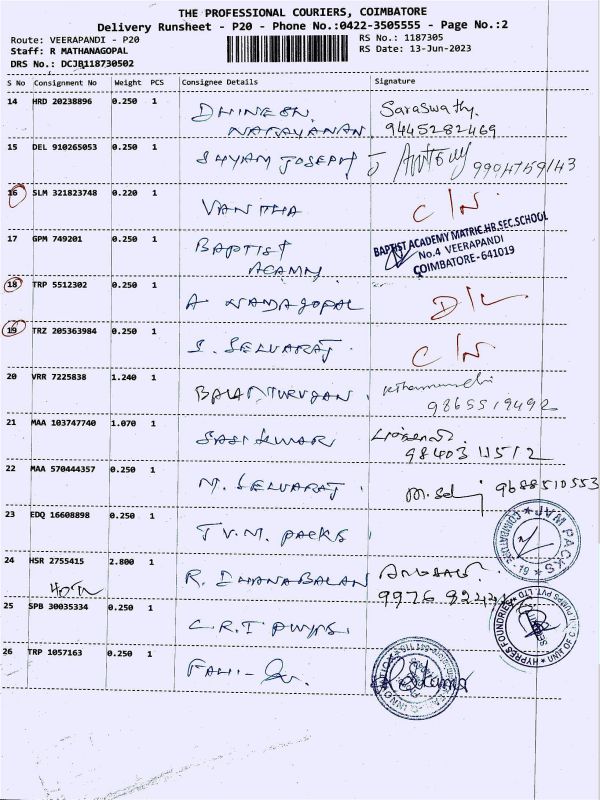 THE PROFESSIONAL COURIERS, COIMBATORE
Delivery Runsheet - P20 - Phone No.:0422-3505555 - Page No.:2
Route: VEERAPANDI - P20
Staff: R MATHANAGOPAL
DRS No.: DCJB118730502
RS No.: 1187305
RS Date: 13-Jun-2023
S No Consignment No Weight PCS Consignee Details Signature
14 HRD 20238896 0.250 1 DHINESH Saraswathy.
NARAYANAN 9445282469
15 DEL 910265053 0.250 1 SHYAM JOSEPH J Antony 9904759143
16 SLM 321823748 0.220 1 VANITHA C/N
17 GPM 749201 0.250 1 BAPTIST
ACAMY
BAPTIST ACADEMY MATRIC.HR.SEC.SCHOOL
No.4 VEERAPANDI
COIMBATORE-641019
18 TRP 5512302 0.250 1 A NANDAGOPAL D/L
19 TRZ 205363984 0.250 1 S. SELVARAJ. C/N
20 VRR 7225838 1.240 1 BALAMURUGAN
9865519492
21 MAA 103747740 1.070 1 SASIKUMAR
98403 11512
22 MAA 570444357 0.250 1 M. SELVARAJ 9688510553
23 EDQ 16608898 0.250 1 T.V.M. PACKS
24 HSR 2755415 2.800 1 R. DHANABALAN
9976
25 SPB 30035334 0.250 1 C.R.I PUMPS.
HYPRES FOUNDRIES
26 TRP 1057163 0.250 1